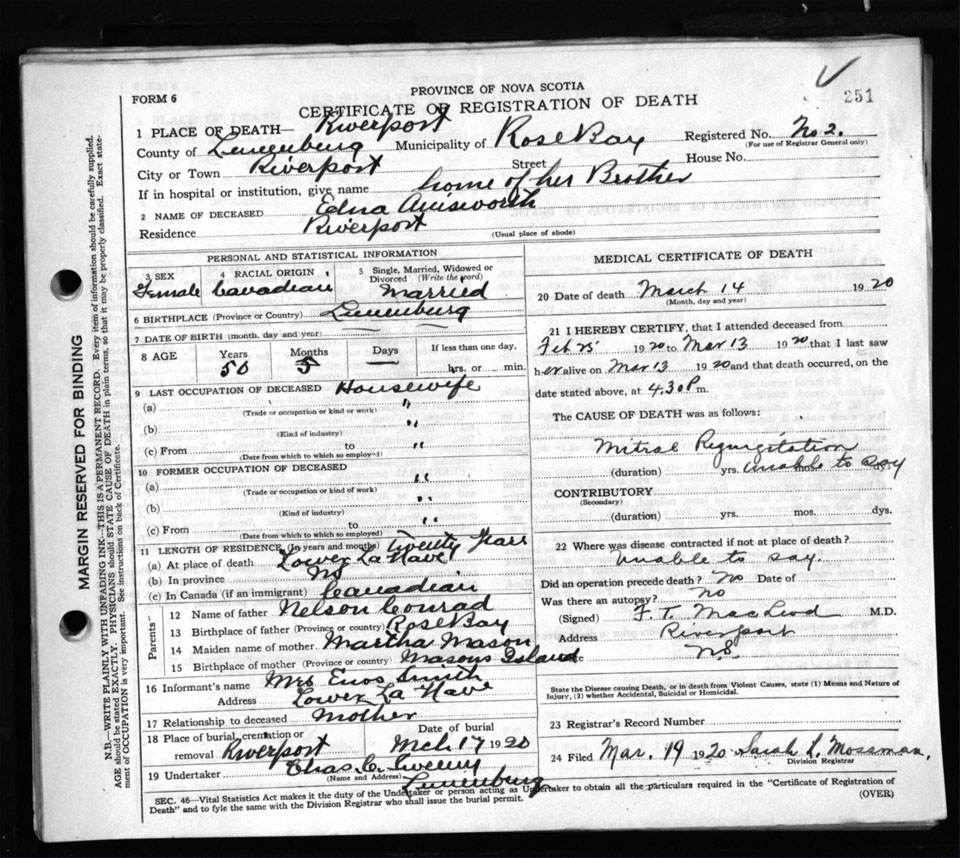 251
FORM 6
PROVINCE OF NOVA SCOTIA
CERTIFICATE OF REGISTRATION OF DEATH
1 PLACE OF DEATH— Riverport
County of Lunenburg Municipality of Rose Bay Registered No. No 2.
(For use of Registrar General only)
City or Town Riverport Street House No.
If in hospital or institution, give name home of her Brother
2 NAME OF DECEASED Edna Ainsworth
Residence Riverport
(Usual place of abode)
PERSONAL AND STATISTICAL INFORMATION
3 SEX Female
4 RACIAL ORIGIN Canadian
5 Single, Married, Widowed or Divorced (Write the word) Married
6 BIRTHPLACE (Province or Country) Lunenburg
7 DATE OF BIRTH (month, day and year)
8 AGE Years Months Days If less than one day,
50 5 — hrs. or min.
9 LAST OCCUPATION OF DECEASED Housewife
(a) "
(Trade or occupation or kind or work)
(b) "
(Kind of industry)
(c) From to "
(Date from which to which so employed)
10 FORMER OCCUPATION OF DECEASED
(a) "
(Trade or occupation or kind of work)
(b) "
(Kind of industry)
(c) From to "
(Date from which to which so employed)
11 LENGTH OF RESIDENCE (In years and months) Twenty Years
(a) At place of death Lower La Have
(b) In province NS
(c) In Canada (if an immigrant) Canadian
Parents
12 Name of father Nelson Conrad
13 Birthplace of father (Province or country) Rose Bay
14 Maiden name of mother Martha Mason
15 Birthplace of mother (Province or country) Masons Island
16 Informant's name Mrs Enos Smith
Address Lower La Have
17 Relationship to deceased Mother
18 Place of burial, cremation or removal Riverport Date of burial Mch 17 1920
19 Undertaker Chas C. Sweeny
(Name and Address) Lunenburg
MEDICAL CERTIFICATE OF DEATH
20 Date of death March 14 1920
(Month, day and year)
21 I HEREBY CERTIFY, that I attended deceased from
Feb 25 1920 to Mar 13 1920 that I last saw
her alive on Mar 13 1920 and that death occurred, on the
date stated above, at 4.30 P m.
The CAUSE OF DEATH was as follows:
Mitral Regurgitation
(duration) yrs. mos. dys. unable to say
CONTRIBUTORY
(Secondary)
(duration) yrs. mos. dys.
22 Where was disease contracted if not at place of death?
Unable to say.
Did an operation precede death? No Date of
Was there an autopsy? No
(Signed) F. T. MacLeod M.D.
Address Riverport
NS.
State the Disease causing Death, or in death from Violent Causes, state (1) Means and Nature of Injury, (2) whether Accidental, Suicidal or Homicidal.
23 Registrar's Record Number
24 Filed Mar. 19 1920 Sarah L. Mossman,
Division Registrar
SEC. 46—Vital Statistics Act makes it the duty of the Undertaker or person acting as Undertaker to obtain all the particulars required in the "Certificate of Registration of
Death" and to fyle the same with the Division Registrar who shall issue the burial permit. (OVER)
MARGIN RESERVED FOR BINDING
N.B.—WRITE PLAINLY WITH UNFADING INK—THIS IS A PERMANENT RECORD. Every item of information should be carefully supplied.
AGE should be stated EXACTLY. PHYSICIANS should STATE CAUSE OF DEATH in plain terms, so that it may be properly classified. Exact statement of OCCUPATION is very important. See instructions on back of Certificate.